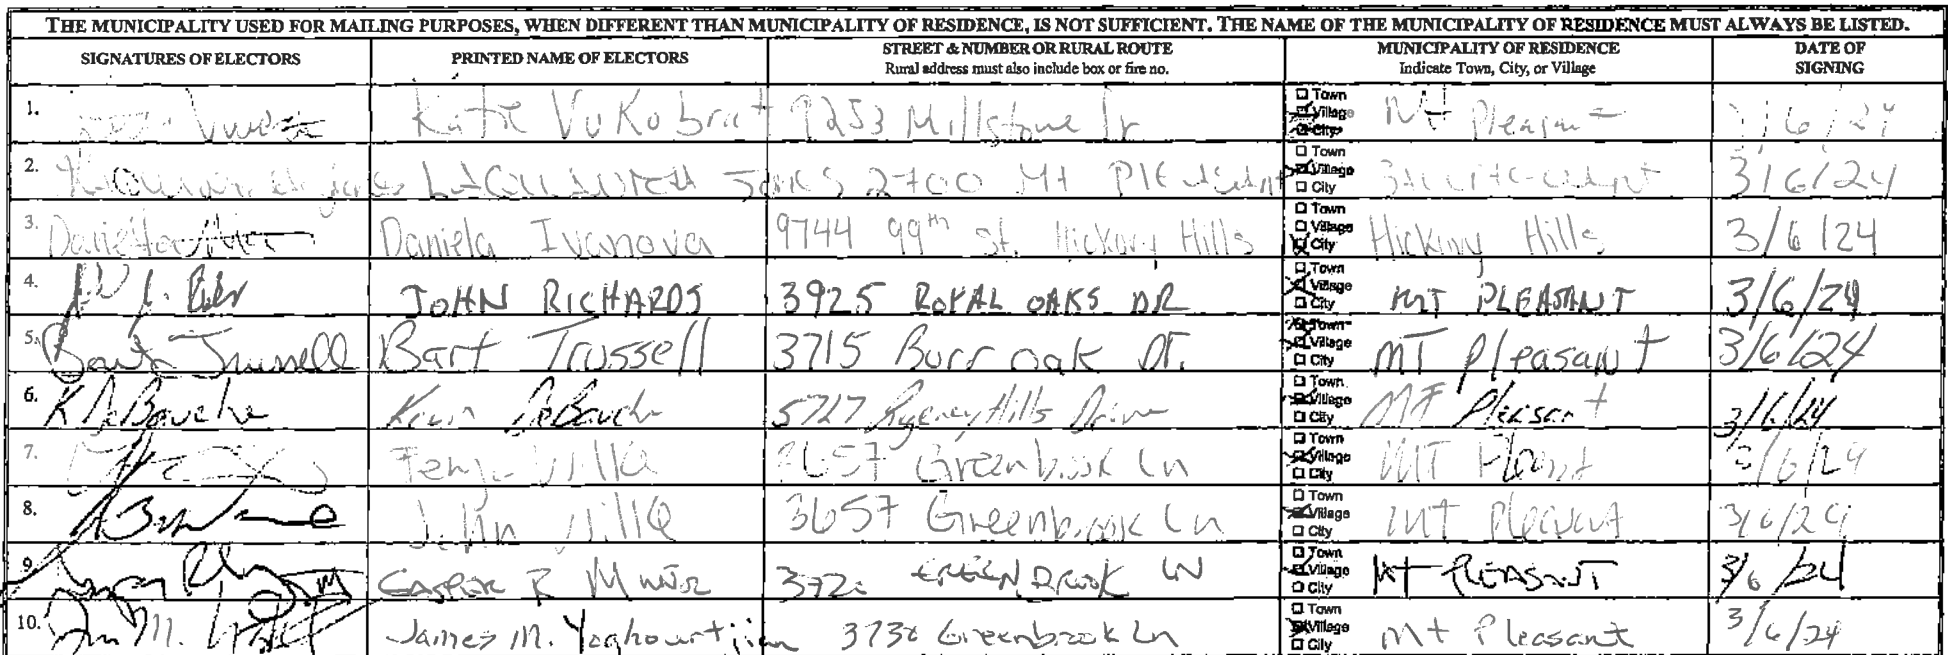 THE MUNICIPALITY USED FOR MAILING PURPOSES, WHEN DIFFERENT THAN MUNICIPALITY OF RESIDENCE, IS NOT SUFFICIENT. THE NAME OF THE MUNICIPALITY OF RESIDENCE MUST ALWAYS BE LISTED.
SIGNATURES OF ELECTORS PRINTED NAME OF ELECTORS STREET & NUMBER OR RURAL ROUTE MUNICIPALITY OF RESIDENCE DATE OF
Rural address must also include box or fire no. Indicate Town, City, or Village SIGNING
1. Katie Vukobrat 9253 Millstone Dr Town Village City Mt Pleasant 3/6/24
2. Jones 2700 Mt Pleasant Town Village City 3/6/24
3. Daniela Ivanova 9744 99th St. Hickory Hills Town Village City Hickory Hills 3/6/24
4. JOHN RICHARDS 3925 ROYAL OAKS DR Town Village City MT PLEASANT 3/6/24
5. Bart Trussell Bart Trussell 3715 Burr oak Dr. Town Village City MT Pleasant 3/6/24
6. K DeBauche Kevin DeBauche 5727 Regency Hills Drive Town Village City MT Pleasant 3/6/24
7. Willke 3657 Greenbrook Ln Town Village City MT 3/6/24
8. John Willke 3657 Greenbrook Ln Town Village City Mt Pleasant 3/6/24
9. R Munoz GREENBROOK LN Town Village City Mt PLEASANT 3/6/24
10. James M. Yoghourtjian 3730 Greenbrook Ln Town Village City Mt Pleasant 3/6/24